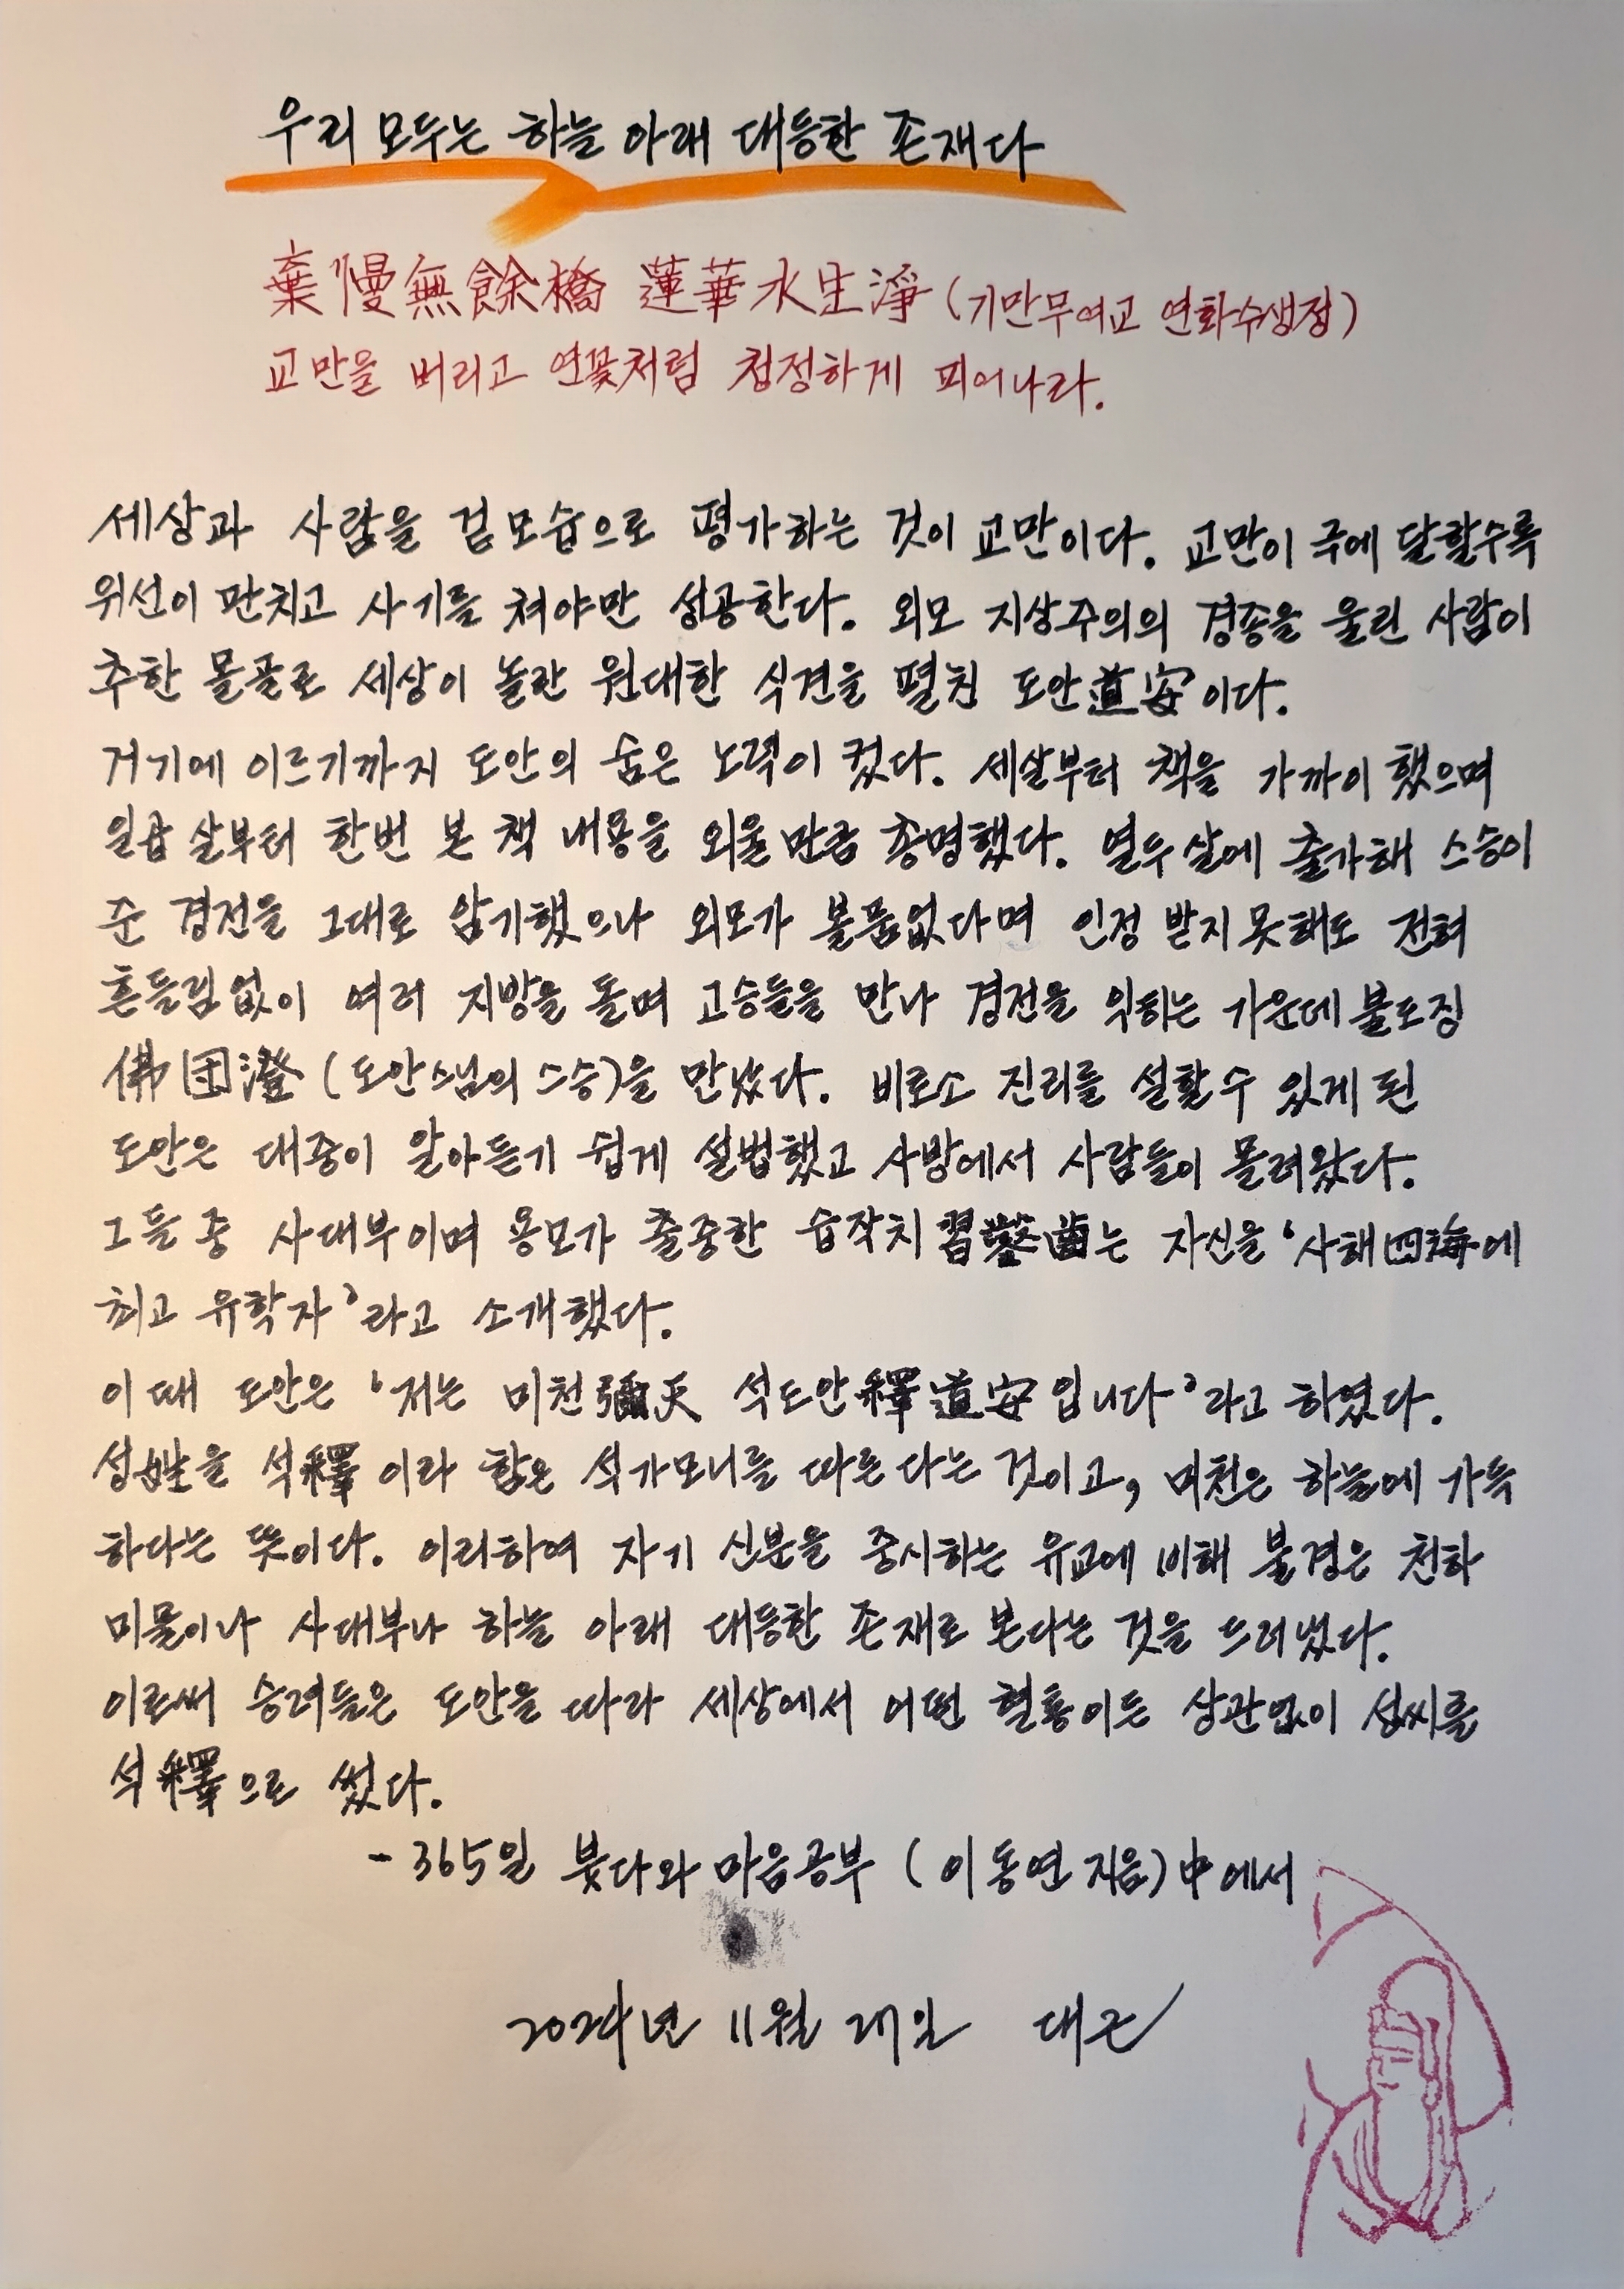 우리 모두는 하늘 아래 대등한 존재다
棄慢無餘橋 蓮華水生淨 (기만무여교 연화수생정)
교만을 버리고 연꽃처럼 청정하게 피어나라.
세상과 사람을 겉모습으로 평가하는 것이 교만이다. 교만이 극에 달할수록
위선이 판치고 사기를 쳐야만 성공한다. 외모 지상주의의 경종을 울린 사람이
추한 몰골로 세상이 놀란 원대한 식견을 펼친 도안道安이다.
거기에 이르기까지 도안의 숨은 노력이 컸다. 세살부터 책을 가까이 했으며
일곱 살부터 한번 본 책 내용을 외울만큼 총명했다. 열두살에 출가해 스승이
준 경전을 그대로 암기했으나 외모가 볼품없다며 인정 받지 못해도 전혀
흔들림없이 여러 지방을 돌며 고승들을 만나 경전을 익히는 가운데 불도징
佛図澄 (도안스님의 스승)을 만났다. 비로소 진리를 설할수 있게 된
도안은 대중이 알아듣기 쉽게 설법했고 사방에서 사람들이 몰려왔다.
그들 중 사대부이며 용모가 출중한 습착치 習鑿齒는 자신을 '사해四海에
최고 유학자'라고 소개했다.
이 때 도안은 '저는 미천彌天 석도안釋道安입니다'라고 하였다.
성姓을 석釋이라 함은 석가모니를 따른다는 것이고, 미천은 하늘에 가득
하다는 뜻이다. 이리하여 자기 신분을 중시하는 유교에 비해 불경은 천하
미물이나 사대부나 하늘 아래 대등한 존재로 본다는 것을 드러냈다.
이로써 승려들은 도안을 따라 세상에서 어떤 혈통이든 상관없이 성씨를
석釋으로 썼다.
- 365일 붓다와 마음공부 (이동연 지음)中에서
2024년 11월 27일 대근